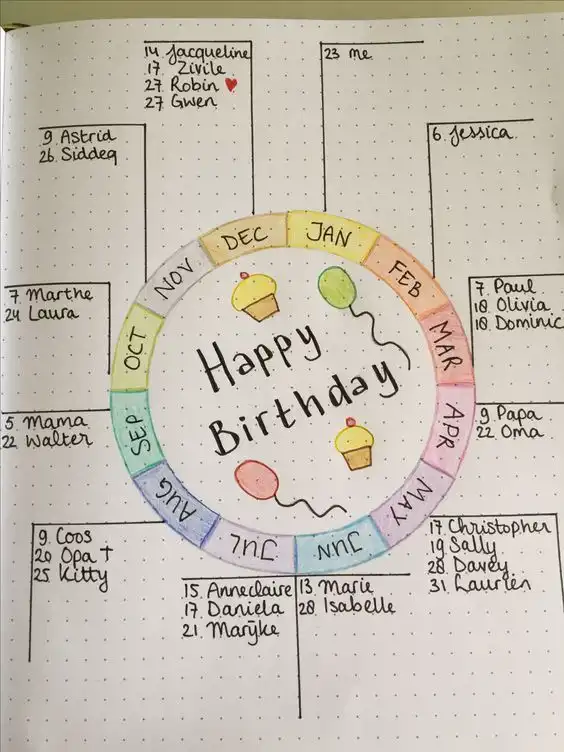 14 Jacqueline
17. Zivile
27 Robin ♥
27 Gwen
23 me
9 Astrid
26 Siddeq
6. Jessica
DEC
JAN
NOV
FEB
7 Marthe
24 Laura
7. Paul
18 Olivia
18 Dominic
OCT
MAR
Happy
Birthday
5. Mama
22 Walter
SEP
APR
9 Papa
22 Oma
AUG
MAY
JUL
JUN
9. Coos
20 Opa †
25 Kitty
17 Christopher
19 Sally
28 Davey
31 Laurien
15. Anneclaire
17 Daniela
21. Marijke
13 Marie
28 Isabelle